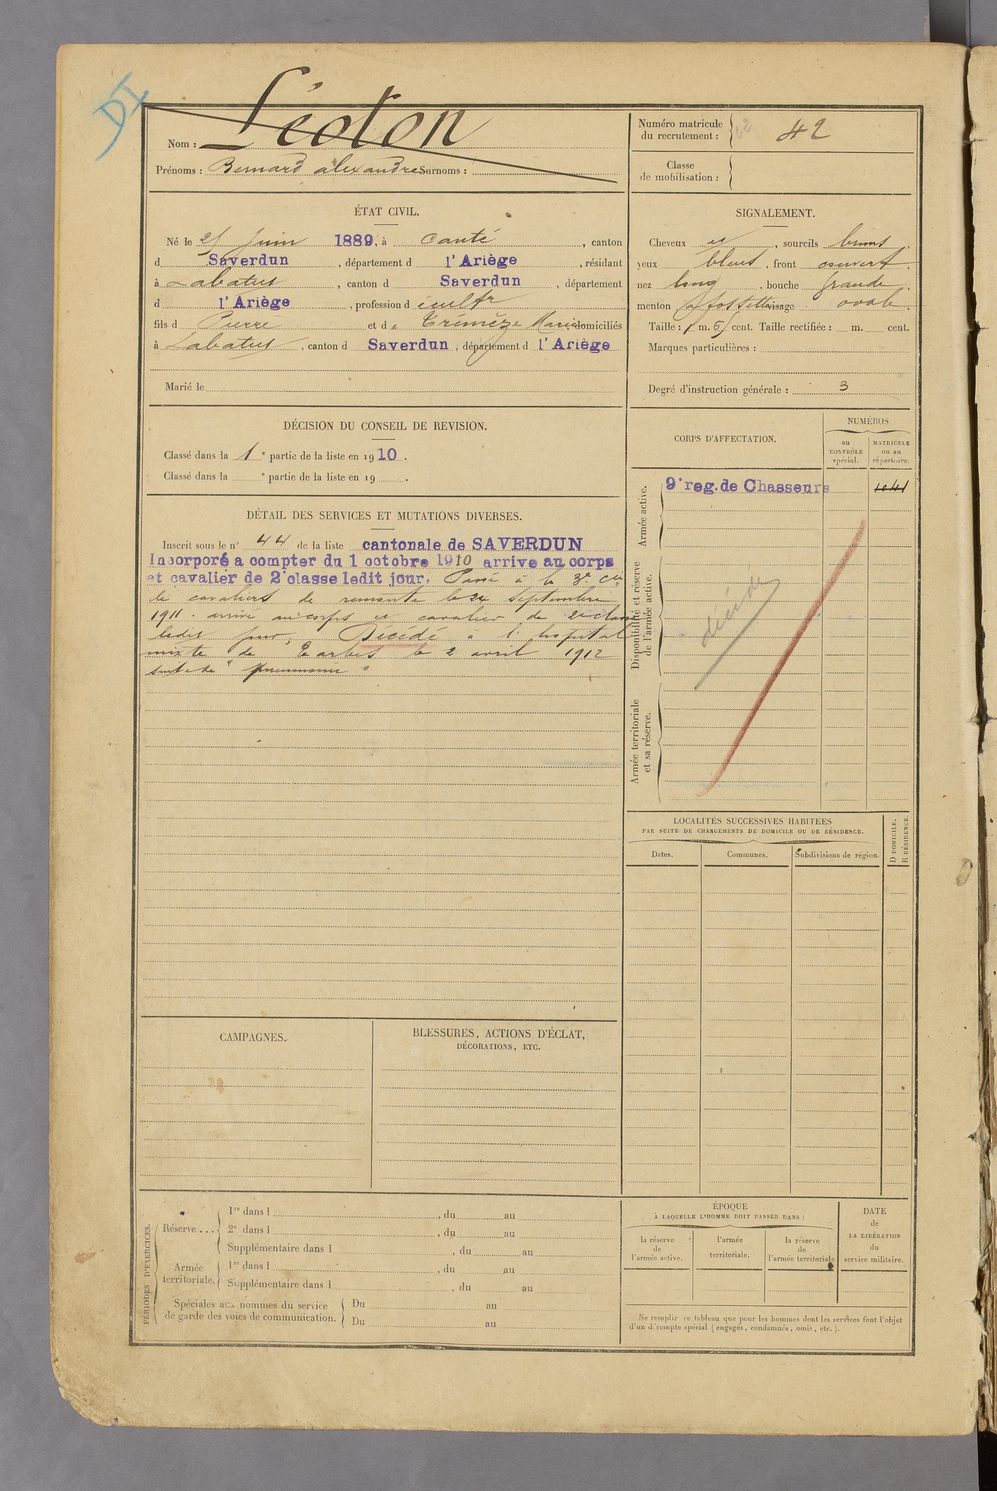 DI
Nom : Léoton
Prénoms : Bernard alexandre Surnoms :
Numéro matricule
du recrutement : 42
Classe
de mobilisation :
ÉTAT CIVIL.
Né le Juin 1889, à Canté, canton
d Saverdun, département d l'Ariège, résidant
à Labatut, canton d Saverdun, département
d l'Ariège, profession d cultr
fils d Pierre et de Marie domiciliés
à Labatut, canton d Saverdun, département d l'Ariège
Marié le
SIGNALEMENT.
Cheveux et, sourcils bruns
yeux bleus, front couvert
nez long, bouche grande
menton à fossette visage ovale
Taille : 1 m. cent. Taille rectifiée : m. cent.
Marques particulières :
Degré d'instruction générale : 3
DÉCISION DU CONSEIL DE REVISION.
Classé dans la 1e partie de la liste en 1910.
Classé dans la e partie de la liste en 19 .
DÉTAIL DES SERVICES ET MUTATIONS DIVERSES.
Inscrit sous le n° 44 de la liste cantonale de SAVERDUN
Incorporé a compter du 1 octobre 1910 arrive au corps
et cavalier de 2e classe ledit jour. Passé à la 3e Cie
de cavaliers de remonte le 24 septembre
1911. arrivé au corps et cavalier de 2e classe
ledit jour, Décédé à l'hopital
mixte de Tarbes le 2 avril 1912
suite de "pneumonie"
CORPS D'AFFECTATION.
NUMÉROS
au
CONTRÔLE
spécial.
MATRICULE
ou au
répertoire.
Armée active.
9e reg. de Chasseurs 1041
Disponibilité et réserve
de l'armée active.
décédé
Armée territoriale
et sa réserve.
LOCALITÉS SUCCESSIVES HABITÉES
PAR SUITE DE CHANGEMENTS DE DOMICILE OU DE RÉSIDENCE.
Dates.
Communes.
Subdivisions de région.
D DOMICILE.
R RÉSIDENCE.
CAMPAGNES.
BLESSURES, ACTIONS D'ÉCLAT,
DÉCORATIONS, ETC.
PÉRIODES D'EXERCICES.
Réserve ...
1re dans l , du au
2e dans l , du au
Supplémentaire dans l , du au
Armée
territoriale.
1re dans l , du au
Supplémentaire dans l , du au
Spéciales aux hommes du service
de garde des voies de communication.
Du au
Du au
ÉPOQUE
À LAQUELLE L'HOMME DOIT PASSER DANS :
la réserve
de
l'armée active.
l'armée
territoriale.
la réserve
de
l'armée territoriale
DATE
de
LA LIBÉRATION
du
service militaire.
Ne remplir ce tableau que pour les hommes dont les services font l'objet
d'un d compte spécial (engagés, condamnés, omis, etc.).